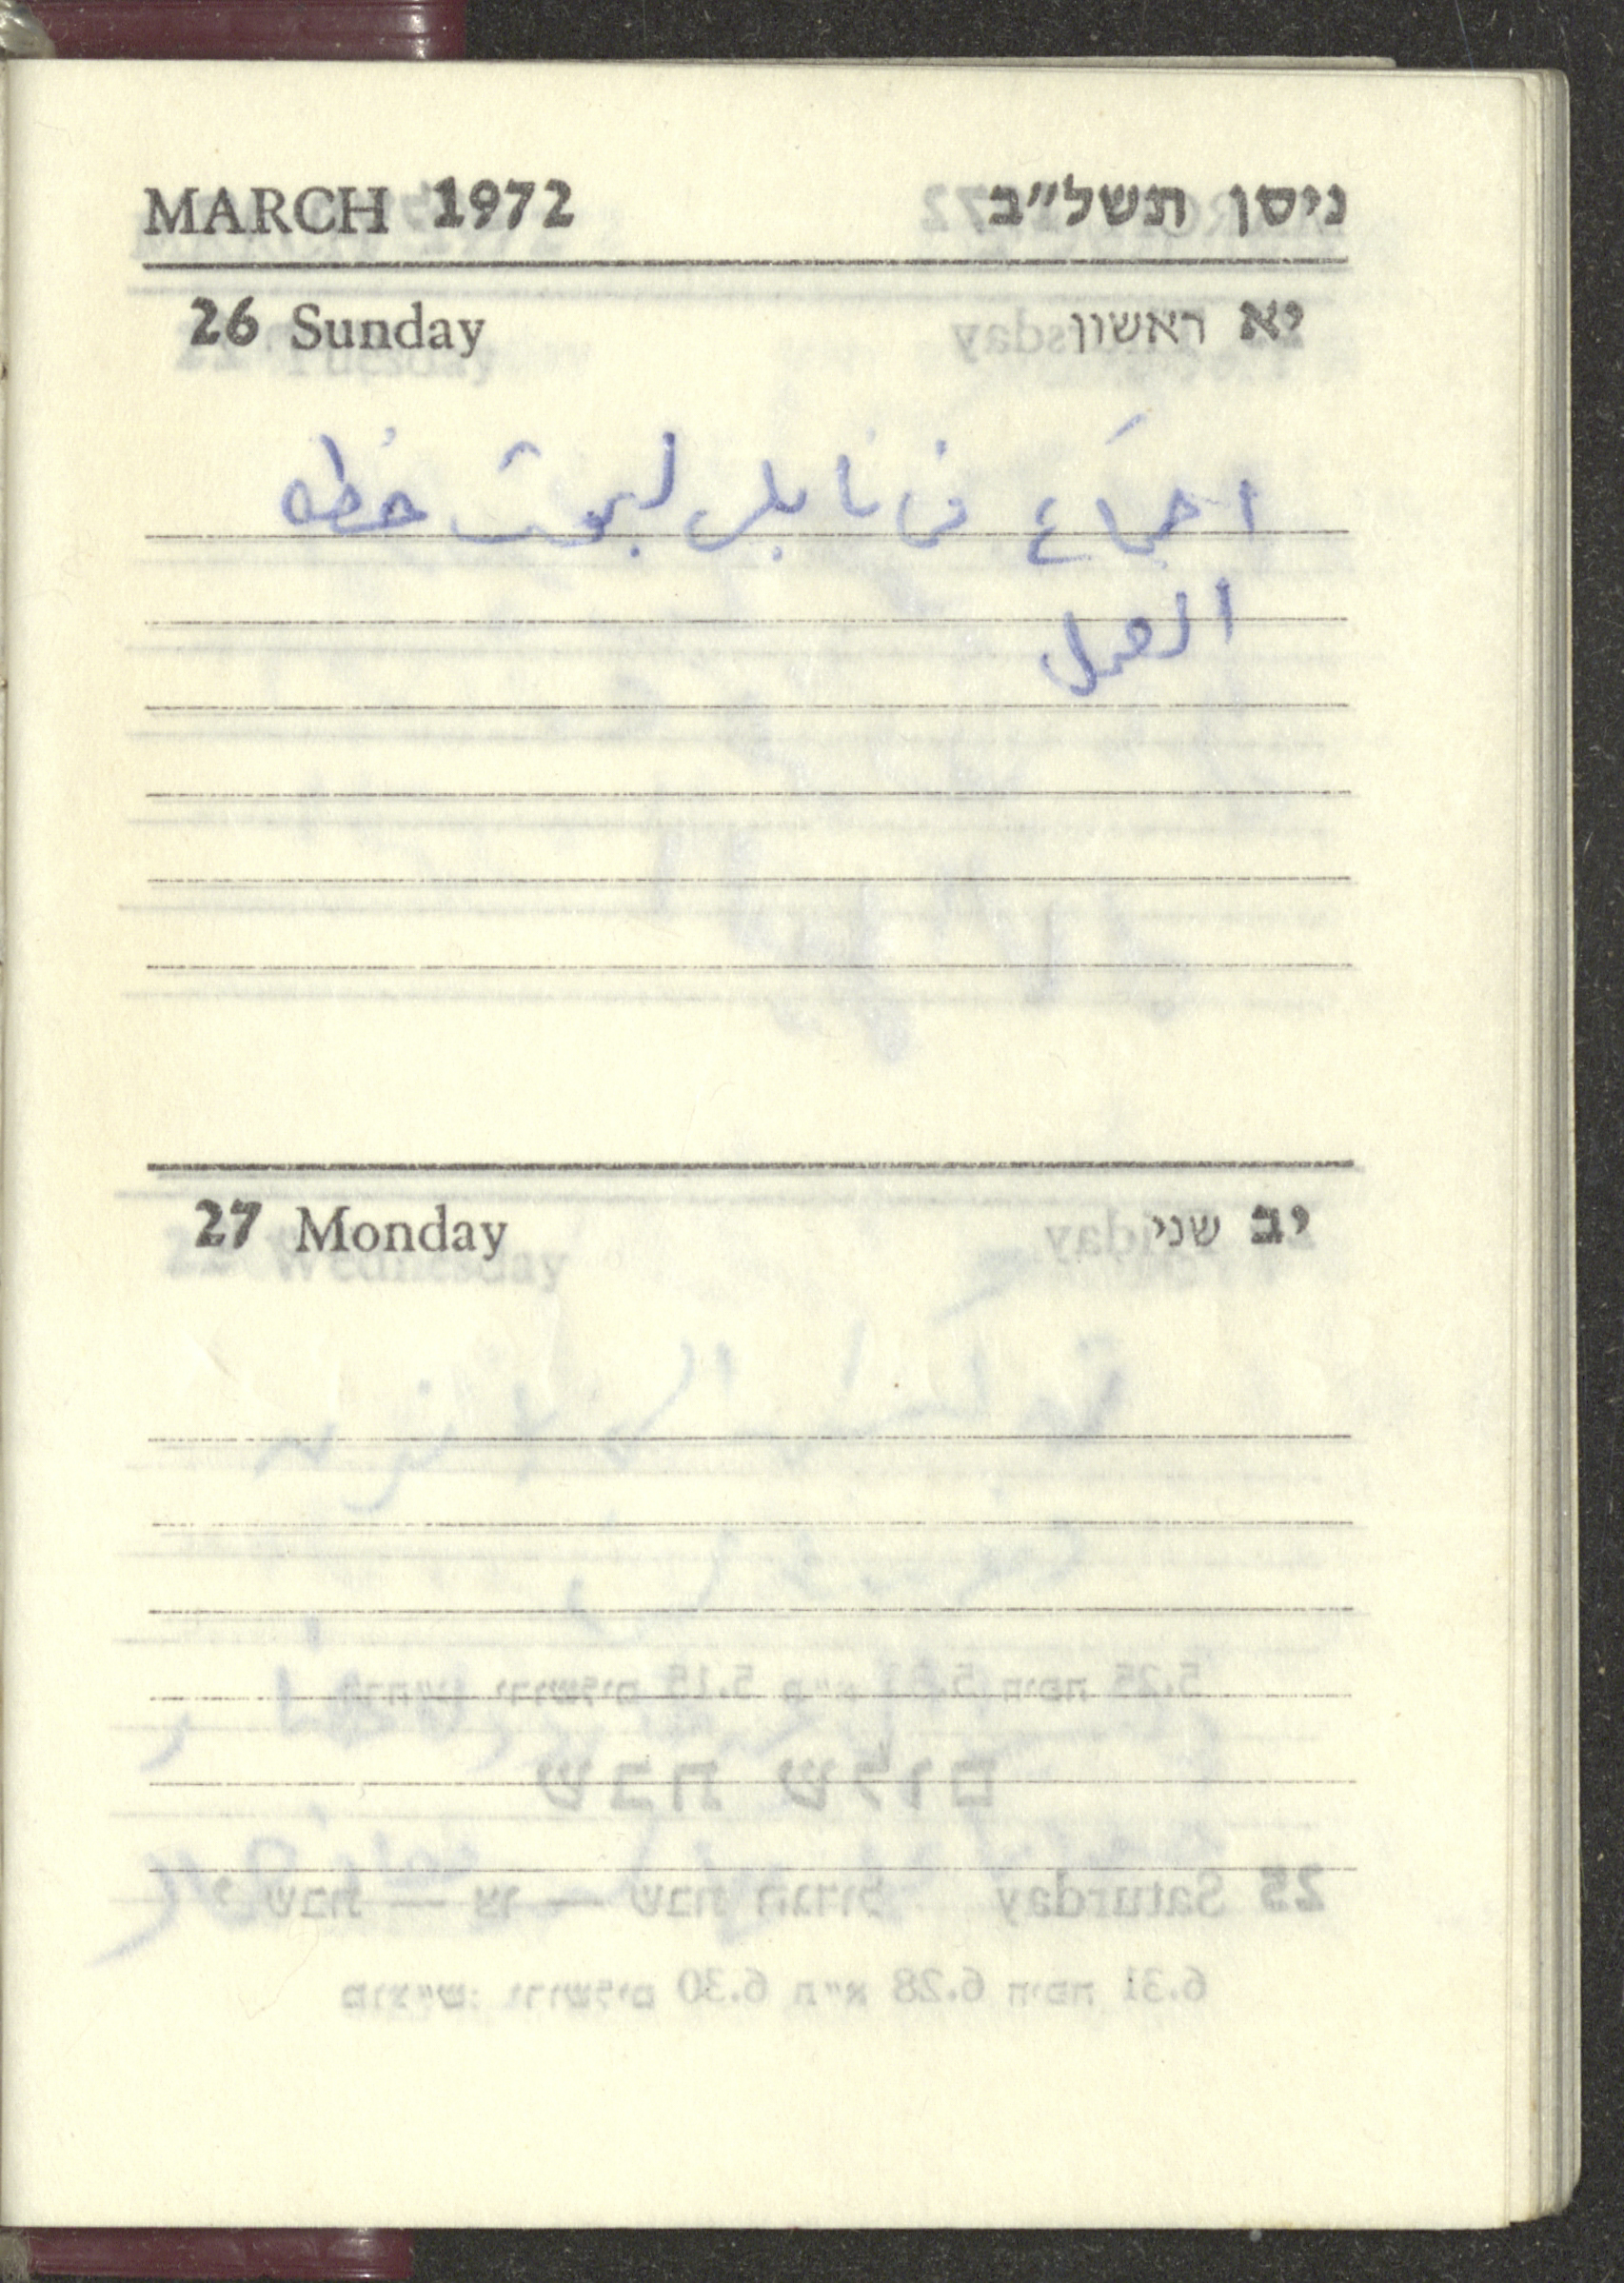 MARCH 1972 ניסן תשל״ב
26 Sunday יא ראשון
اجتماع في نابلس لبحث خطه
العمل
27 Monday יב שני